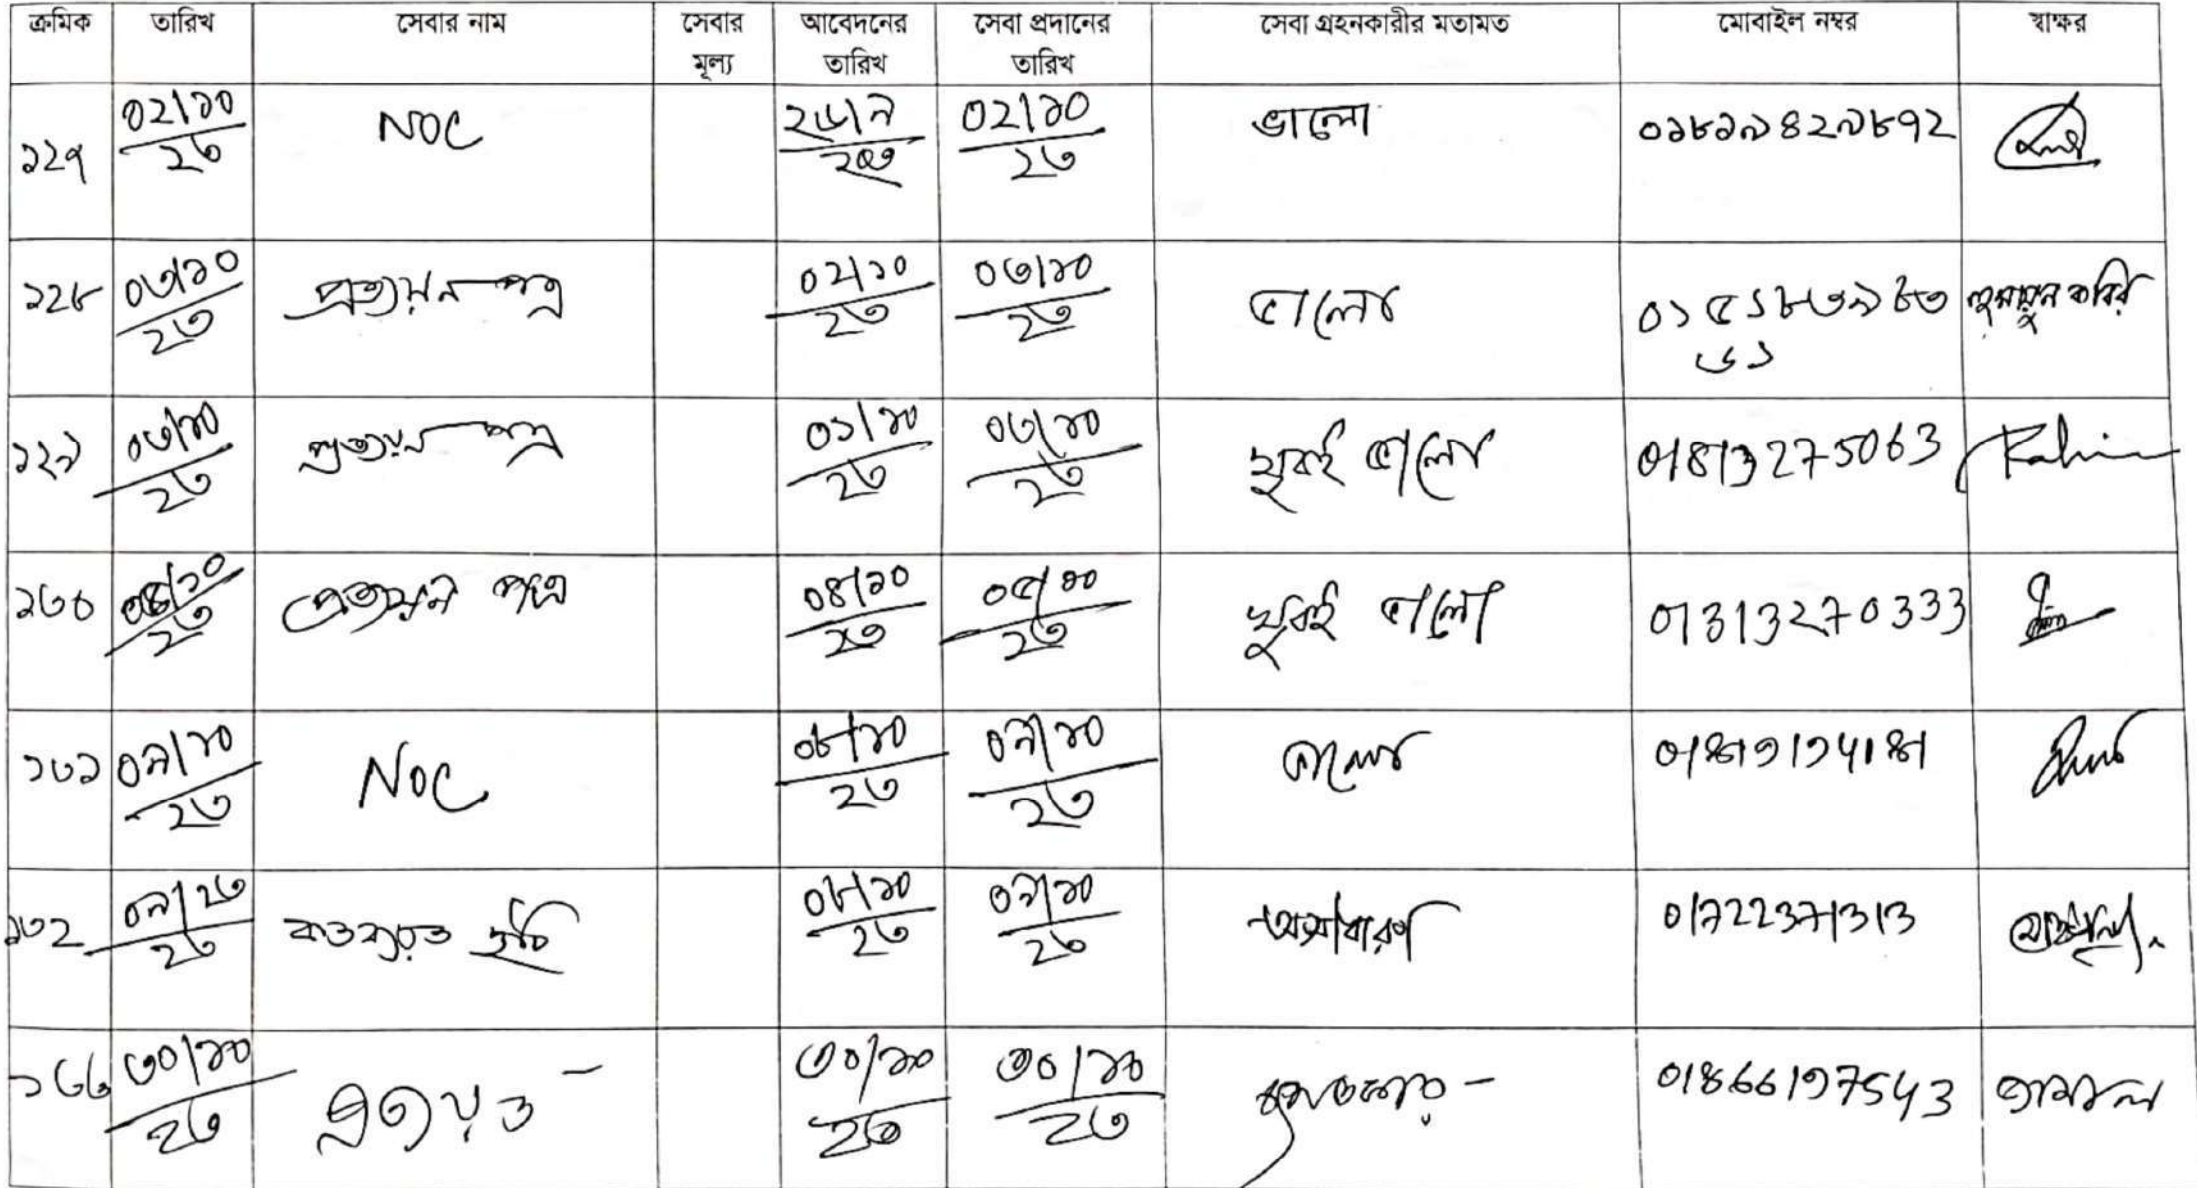 ক্রমিক তারিখ সেবার নাম সেবার মূল্য আবেদনের তারিখ সেবা প্রদানের তারিখ সেবা গ্রহনকারীর মতামত মোবাইল নম্বর স্বাক্ষর
১২৭ ০২/১০/২৩ NOC ২৬/৯/২৩ ০২/১০/২৩ ভালো ০১৮১৯৪২৯৮৭২
১২৮ ০৩/১০/২৩ প্রত্যয়ন পত্র ০২/১০/২৩ ০৩/১০/২৩ ভালো ০১৫১৮৩৯৮৩৬১ হুমায়ুন কবির
১২৯ ০৩/১০/২৩ প্রত্যয়ন পত্র ০১/১০/২৩ ০৩/১০/২৩ খুবই ভালো 01813275063 Rahim
১৩০ ০৫/১০/২৩ প্রত্যয়ন পত্র ০৪/১০/২৩ ০৫/১০/২৩ খুবই ভালো 01313270333
১৩১ ০৯/১০/২৩ NOC ০৮/১০/২৩ ০৯/১০/২৩ ভালো
১৩২ ০৯/২৩/২৩ ০৮/১০/২৩ ০৯/১০/২৩ অসাধারণ 01722371313
১৩৩ ৩০/১০/২৩ ৩০/১০/২৩ ৩০/১০/২৩ 01866197543